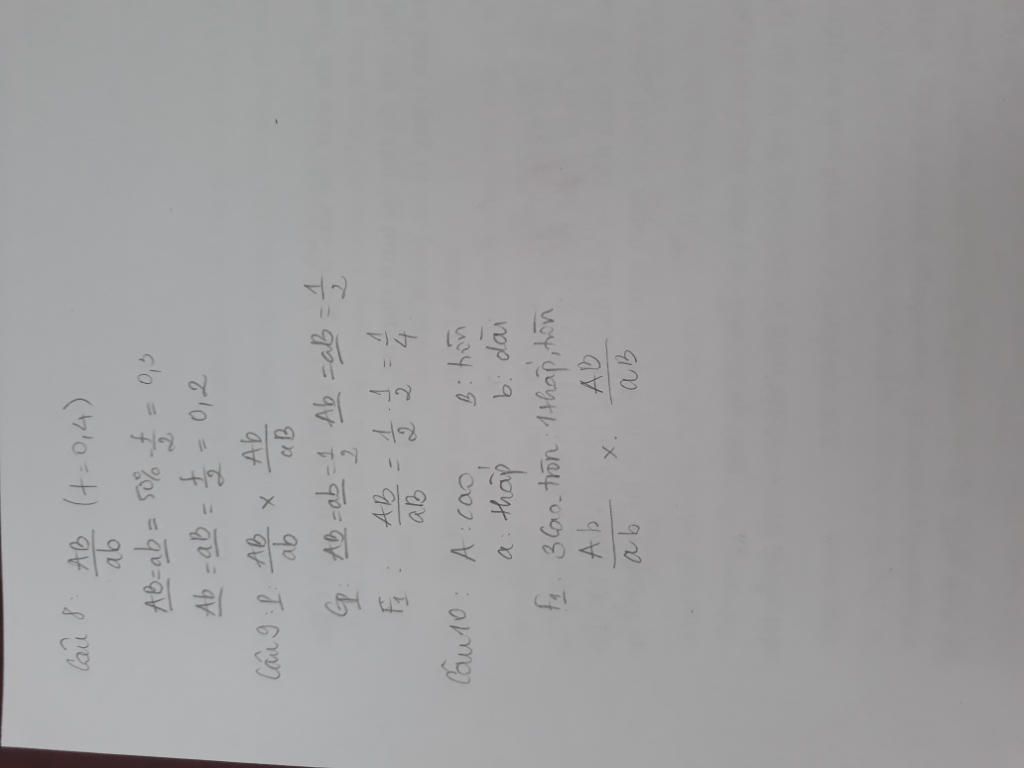 Câu 8: AB/ab (f = 0,4)
AB = ab = 50% - f/2 = 0,3
Ab = aB = f/2 = 0,2
Câu 9: P: AB/ab x Ab/aB
Gp: AB = ab = 1/2 Ab = aB = 1/2
F1: AB/aB = 1/2 . 1/2 = 1/4
Câu 10: A: cao B: tròn
a: thấp b: dài
F1: 3 Cao-tròn: 1 thấp, tròn
Ab/ab x. AB/aB